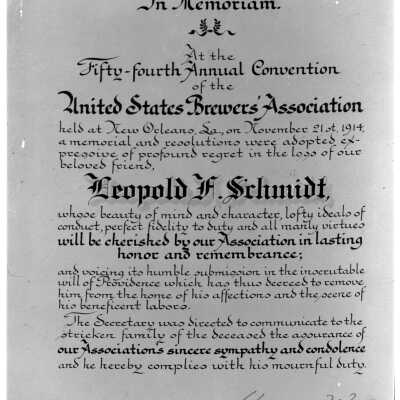 In Memoriam.
At the
Fifty-fourth Annual Convention
of the
United States Brewers' Association
held at New Orleans, La., on November 21st, 1914,
a memorial and resolutions were adopted, ex-
pressive of profound regret in the loss of our
beloved friend,
Leopold F. Schmidt,
whose beauty of mind and character, lofty ideals of
conduct, perfect fidelity to duty and all manly virtues
will be cherished by our Association in lasting
honor and remembrance;
and voicing its humble submission in the inscrutable
will of Providence which has thus decreed to remove
him from the home of his affections and the scene of
his beneficent labors.
The Secretary was directed to communicate to the
stricken family of the deceased the assurance of
our Association's sincere sympathy and condolence
and he hereby complies with his mournful duty.